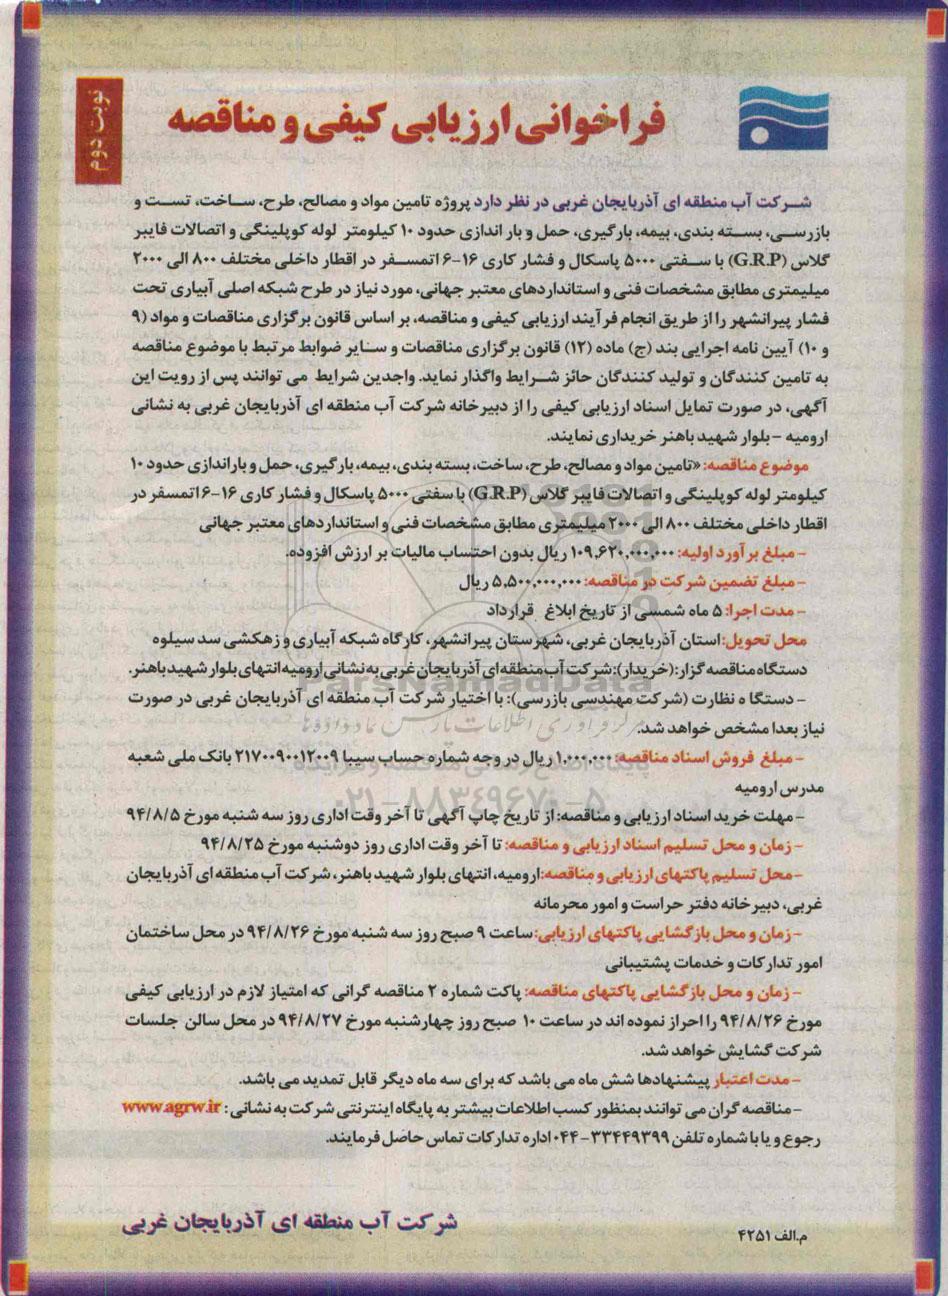 نوبت دوم
فراخوانی ارزیابی کیفی و مناقصه
شرکت آب منطقه ای آذربایجان غربی در نظر دارد پروژه تامین مواد و مصالح، طرح، ساخت، تست و
بازرسی، بسته بندی، بیمه، بارگیری، حمل و بار اندازی حدود ۱۰ کیلومتر لوله کوپلینگی و اتصالات فایبر
گلاس (G.R.P) با سفتی ۵۰۰۰ پاسکال و فشار کاری ۱۶-۶ اتمسفر در اقطار داخلی مختلف ۸۰۰ الی ۲۰۰۰
میلیمتری مطابق مشخصات فنی و استانداردهای معتبر جهانی، مورد نیاز در طرح شبکه اصلی آبیاری تحت
فشار پیرانشهر را از طریق انجام فرآیند ارزیابی کیفی و مناقصه، بر اساس قانون برگزاری مناقصات و مواد (۹
و ۱۰) آیین نامه اجرایی بند (ج) ماده (۱۲) قانون برگزاری مناقصات و سایر ضوابط مرتبط با موضوع مناقصه
به تامین کنندگان و تولید کنندگان حائز شرایط واگذار نماید. واجدین شرایط می توانند پس از رویت این
آگهی، در صورت تمایل اسناد ارزیابی کیفی را از دبیرخانه شرکت آب منطقه ای آذربایجان غربی به نشانی
ارومیه - بلوار شهید باهنر خریداری نمایند.
موضوع مناقصه: «تامین مواد و مصالح، طرح، ساخت، بسته بندی، بیمه، بارگیری، حمل و باراندازی حدود ۱۰
کیلومتر لوله کوپلینگی و اتصالات فایبر گلاس (G.R.P) با سفتی ۵۰۰۰ پاسکال و فشار کاری ۱۶-۶ اتمسفر در
اقطار داخلی مختلف ۸۰۰ الی ۲۰۰۰ میلیمتری مطابق مشخصات فنی و استانداردهای معتبر جهانی
- مبلغ برآورد اولیه: ۱۰۹,۶۲۰,۰۰۰,۰۰۰ ریال بدون احتساب مالیات بر ارزش افزوده.
- مبلغ تضمین شرکت در مناقصه: ۵,۵۰۰,۰۰۰,۰۰۰ ریال
- مدت اجرا: ۵ ماه شمسی از تاریخ ابلاغ قرارداد
محل تحویل: استان آذربایجان غربی، شهرستان پیرانشهر، کارگاه شبکه آبیاری و زهکشی سد سیلوه
دستگاه مناقصه گزار: (خریدار): شرکت آب منطقه ای آذربایجان غربی به نشانی ارومیه انتهای بلوار شهید باهنر.
- دستگا ه نظارت (شرکت مهندسی بازرسی): با اختیار شرکت آب منطقه ای آذربایجان غربی در صورت
نیاز بعدا مشخص خواهد شد.
- مبلغ فروش اسناد مناقصه: ۱,۰۰۰,۰۰۰ ریال در وجه شماره حساب سیبا ۲۱۷۰۰۹۰۰۱۲۰۰۹ بانک ملی شعبه
مدرس ارومیه
- مهلت خرید اسناد ارزیابی و مناقصه: از تاریخ چاپ آگهی تا آخر وقت اداری روز سه شنبه مورخ ۹۴/۸/۵
- زمان و محل تسلیم اسناد ارزیابی و مناقصه: تا آخر وقت اداری روز دوشنبه مورخ ۹۴/۸/۲۵
- محل تسلیم پاکتهای ارزیابی و مناقصه: ارومیه، انتهای بلوار شهید باهنر، شرکت آب منطقه ای آذربایجان
غربی، دبیرخانه دفتر حراست و امور محرمانه
- زمان و محل بازگشایی پاکتهای ارزیابی: ساعت ۹ صبح روز سه شنبه مورخ ۹۴/۸/۲۶ در محل ساختمان
امور تدارکات و خدمات پشتیبانی
- زمان و محل بازگشایی پاکتهای مناقصه: پاکت شماره ۲ مناقصه گرانی که امتیاز لازم در ارزیابی کیفی
مورخ ۹۴/۸/۲۶ را احراز نموده اند در ساعت ۱۰ صبح روز چهارشنبه مورخ ۹۴/۸/۲۷ در محل سالن جلسات
شرکت گشایش خواهد شد.
- مدت اعتبار پیشنهادها شش ماه می باشد که برای سه ماه دیگر قابل تمدید می باشد.
- مناقصه گران می توانند بمنظور کسب اطلاعات بیشتر به پایگاه اینترنتی شرکت به نشانی: www.agrw.ir
رجوع و یا با شماره تلفن ۳۳۴۴۹۳۹۹-۰۴۴ اداره تدارکات تماس حاصل فرمایند.
شرکت آب منطقه ای آذربایجان غربی
م.الف ۴۲۵۱
ParsNamadData
مرکز فرآوری اطلاعات پارس نماد داده ها
پایگاه اطلاع رسانی مناقصه و مزایده
۰۲۱-۸۸۳۴۹۶۷۰-۵